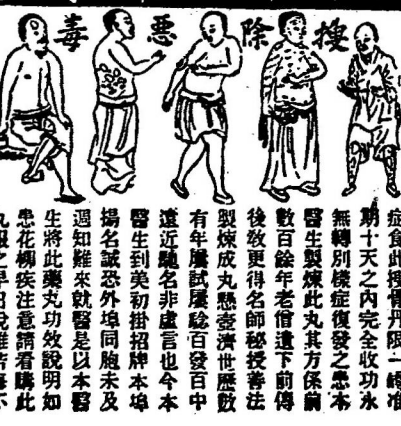 搜除惡毒
症食此搜骨丹限一准
期十天之內完全收功永
無轉別樣症復發之患本
醫生製煉此丸其方係前
數百餘年老僧遺下前傳
後教更得名師秘授善法
製煉成丸懸壺濟世歷數
有年屢試屢騐百發百中
遠近馳名非虛言也今本
醫生到美初掛招牌本埠
揚名誠恐外埠同胞未及
週知難來就醫是以本醫
生將此藥丸功效說明如
患花柳疾注意請看購此
丸服之早日脫離苦海不